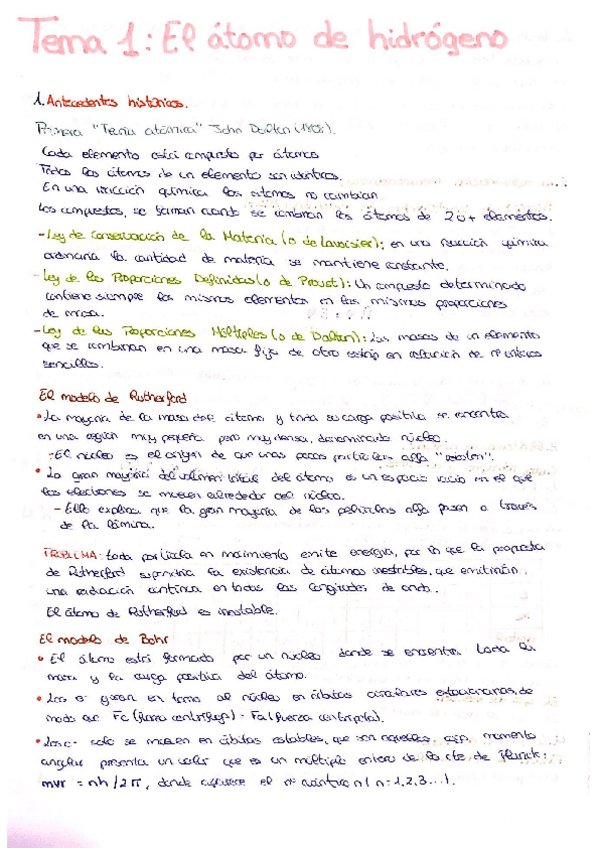 Tema 1: El átomo de hidrógeno
1. Antecedentes históricos.
Primera "Teoría atómica" John Dalton (1808).
Cada elemento está compuesto por átomos
Todos los átomos de un elemento son idénticos.
En una reacción química los átomos no cambian.
Los compuestos, se forman cuando se combinan los átomos de 2 o + elementos.
- Ley de Conservación de la Materia (o de Lavoisier): en una reacción química
ordinaria la cantidad de materia se mantiene constante.
- Ley de las Proporciones Definidas (o de Proust): Un compuesto determinado
contiene siempre los mismos elementos en las mismas proporciones
de masa.
- Ley de las Proporciones Múltiples (o de Dalton): Las masas de un elemento
que se combinan en una masa fija de otro están en relación de nº enteros
sencillos.
El modelo de Rutherford
• La mayoría de la masa del átomo y toda su carga positiva se encentra
en una región muy pequeña pero muy densa, denominada núcleo.
- El núcleo es el origen de que unas pocas partículas alfa "reboten".
• La gran mayoría del volumen total del átomo es un espacio vacío en el que
los electrones se mueven alrededor del núcleo.
- Ello explica que la gran mayoría de las partículas alfa pasen a través
de la lámina.
PROBLEMA: toda partícula en movimiento emite energía, por lo que la propuesta
de Rutherford supondría la existencia de átomos inestables, que emitirían
una radiación continua en todas las longitudes de onda.
El átomo de Rutherford es inestable.
El modelo de Bohr
• El átomo está formado por un núcleo donde se encuentra toda la
masa y la carga positiva del átomo.
• Los e⁻ giran en torno al núcleo en órbitas circulares estacionarias, de
modo que Fc (fuerza centrífuga) = Fa (fuerza centrípeta).
• Los e⁻ solo se mueven en órbitas estables, que son aquellas, cuyo momento
angular presenta un valor que es un múltiplo entero de la cte de Planck:
mvr = nh/2π, donde aparece el nº cuántico n (n=1,2,3...).